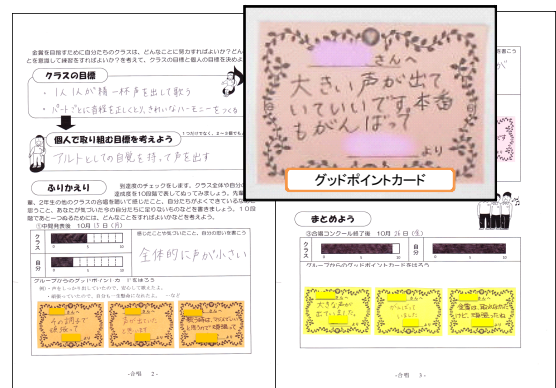 金賞を目指すために自分たちのクラスは、どんなことに努力すればよいか？どん
とを意識して練習をすればよいか？を考えて、クラスの目標と個人の目標を決めよ
クラスの目標
・1人1人が精一杯声を出して歌う
・パートごとに音程を正しくとり、きれいなハーモニーをつくる
個人で取り組む目標を考えよう
アルトとしての自覚を持って声を出す
ふりかえり
到達度のチェックをします。クラス全体や自分の
達成度を10段階で表してぬってみましょう。
、2年生の他のクラスの合唱を聴いて感じたこと、自分たちがよくできている
思うこと、あなたが気づいた今の自分たちに足りないものなどを書きましょう。10段
階であと一つぬるためには、どんなことをすればよいかなどを考えよう。
①中間発表後 10月15日(月)
感じたことや気づいたこと、自分の思いを書こう
クラス
0 5 10
自分
0 5 10
全体的に声が小さい
グループからのグッドポイントカードをはろう
さんへ
より
さんへ
より
さんへ
より
-合唱 2-
さんへ
大きい声が出て
いていいです。本番
もがんばって
より
グッドポイントカード
を書こう
まとめよう
③合唱コンクール終了後 10月26日(金)
クラス
0 5 10
自分
0 5 10
グループからのグッドポイントカードをはろう
さんへ
大きな声が
出ていました。
より
さんへ
より
さんへ
より
-合唱 3-